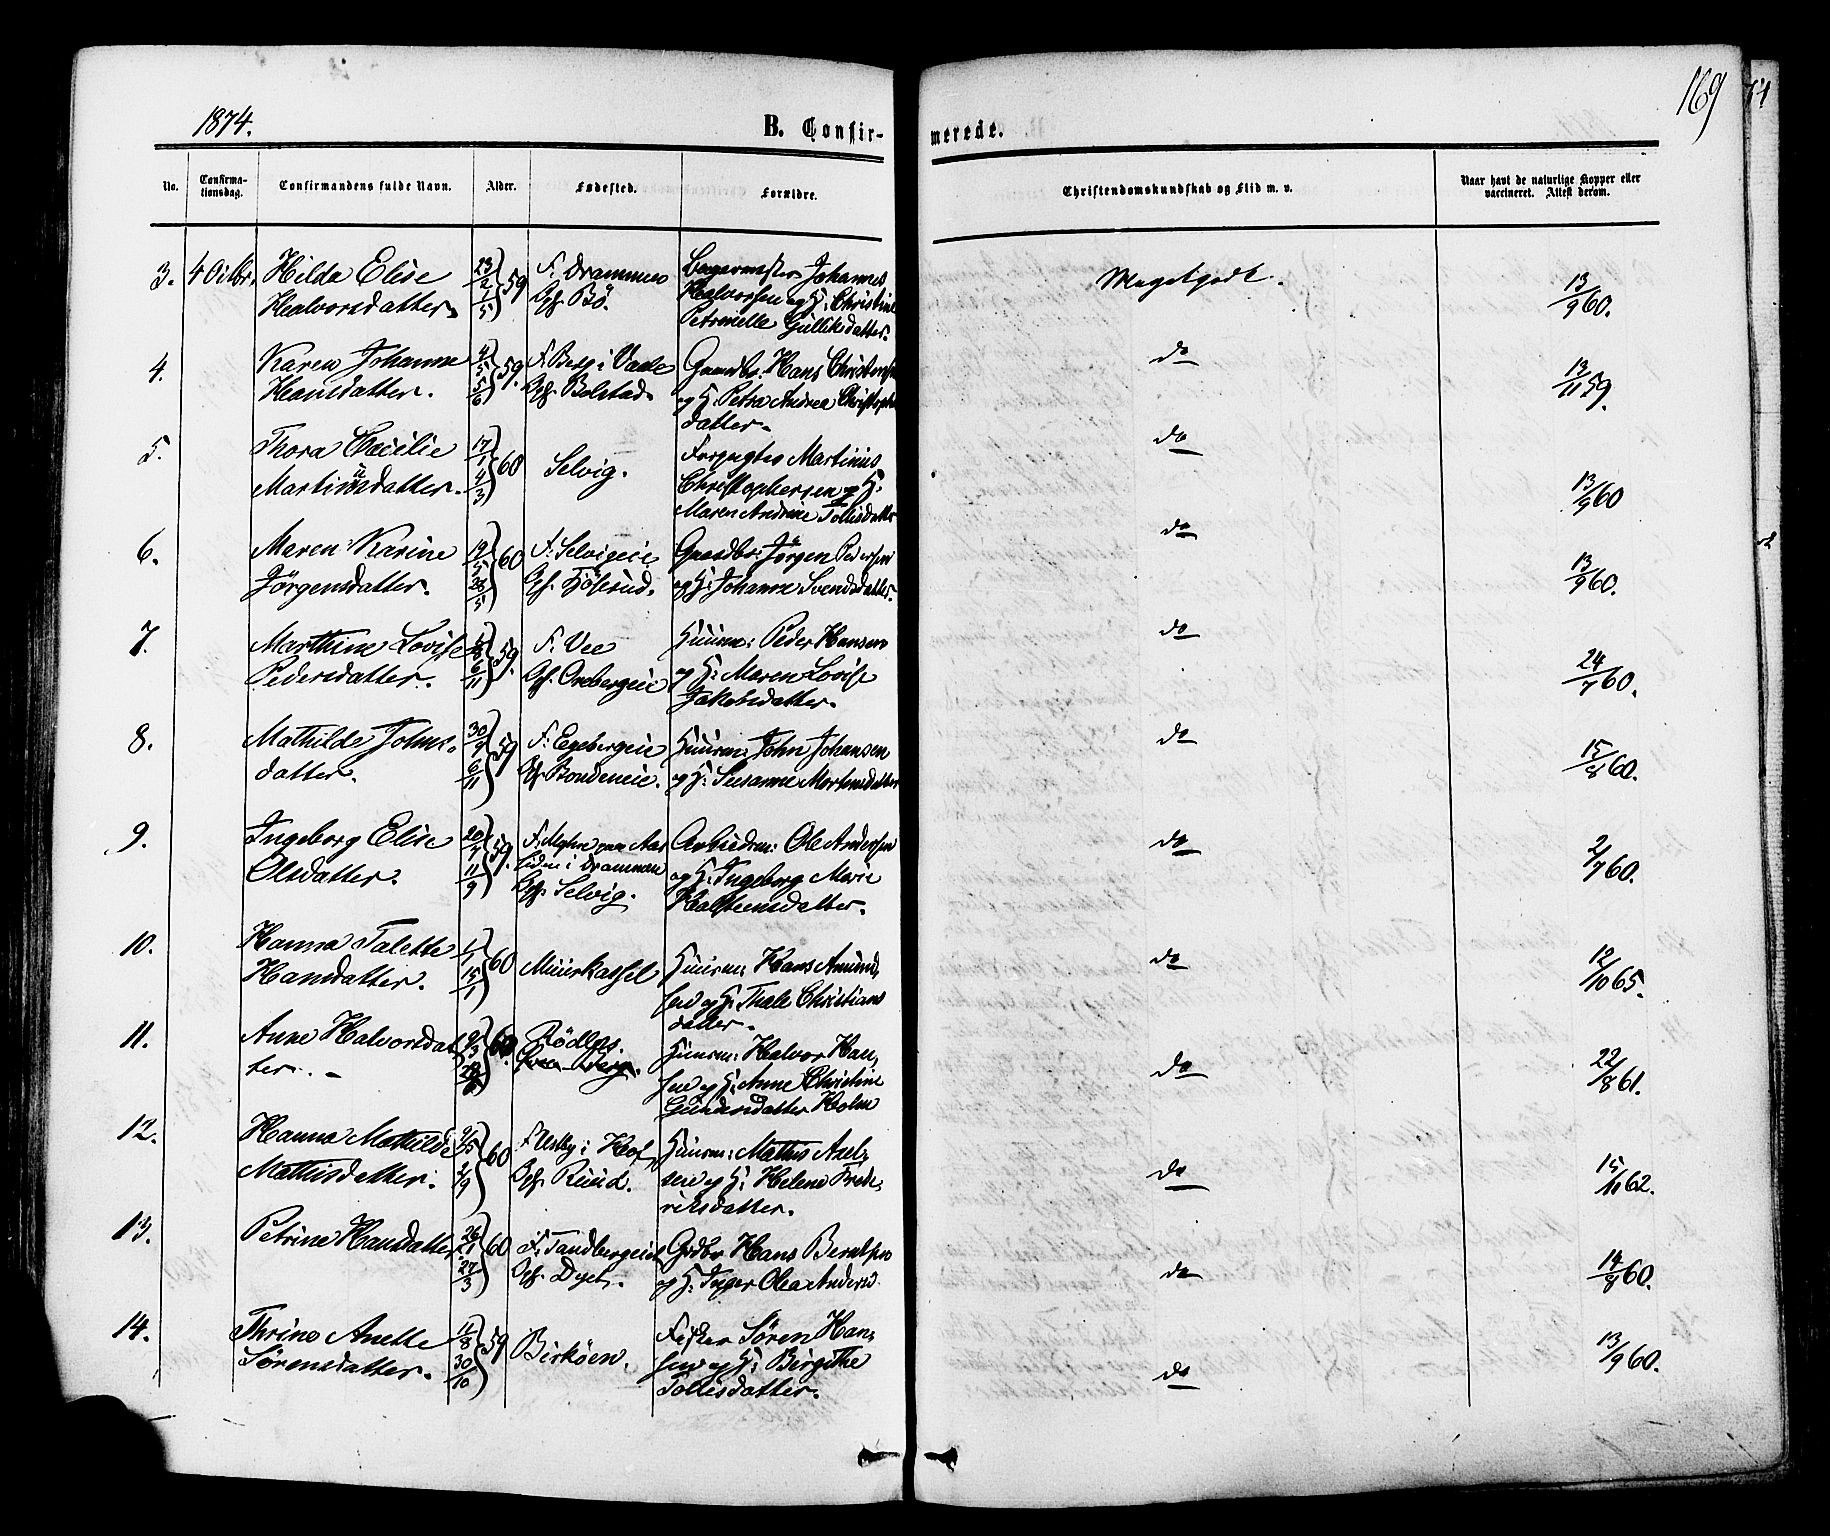 169
1874.
B. Confir-
merede.
No.
Confirma-
tionsdag.
Confirmandens fulde Navn.
Alder.
Fødested.
Forældre.
Christendomskundskab og Flid m. v.
Naar havt de naturlige Kopper eller
vaccineret. Attest derom.
3. 4 Octbr. Hilda Elise
Halvorsdatter.
23/2 1/5 59
F. Drammen
Opf. Bö.
Johannes
Halvorsen og H. Christine
Petronelle Gulliksdatter.
Megetgodt.
13/9 60.
4. Karen Johanne
Hansdatter.
4/5 5/6 59.
F. Berg i Vaale
Opf. Bolstad.
Gaardbr: Hans Christensen
og H. Petra Andrea Christophers
datter.
do
13/11 59.
5. Thora Cecilie
Martinusdatter.
17/1 4/3 60
Selvig.
Forpagter Martinus
Christophersen og H.
Maren Andrine Tollisdatter
do
13/9 60
6. Maren Karine
Jörgensdatter.
19/5 60
F. Selvigeie
Gaardbr: Jörgen Pedersen
og H. Johanne Svendsdatter.
do
13/9 60.
7. Marthine Lovise
Pedersdatter.
6/11 59.
F. Vee
Opf. Orebergeie
Huusm: Peder Hansen
og H. Maren Lovise
Jakobsdatter.
do
24/7 60.
8. Mathilde Johns-
datter.
30/9 6/11 59
F. Egebergeie
Opf. Bondeneie.
Huusm: John Johansen
og H: Susanne Mortensdatter
do
15/8 60.
9. Ingeborg Elise
Olsdatter.
20/7 11/9 59.
i Drammen
Opf. Selvig.
Arbeidsm: Ole Andersen
og H. Ingeborg Marie
Halsteensdatter.
do
2/7 60.
10. Hanna Talette
Hansdatter.
1/1 15/1 60
Muurkassel
Huusm: Hans Amund-
sen og H. Thale Christians
datter.
do
12/10 65.
11. Anne Halvorsdat-
ter.
9/3 60.
Rödgs.
Huusm: Halvor Han-
sen og H. Anne Christine
Gundersdatter Holm
do
22/8 61.
12. Hanna Mathilde
Mathisdatter.
9/5 2/9 60
F. i Hof
Opf. Ruud.
Huusm: Mathis Axel-
sen og H. Helene Fred-
riksdatter.
do
15/10 62.
13. Petrine Hansdatter
26/1 27/3 60
F. Sandbergeie
Opf. Dyet.
Grdbr Hans Berntsen
og H. Inger Olea Andersd.
do
14/8 60.
14. Thrine Anette
Sörensdatter.
11/8 30/10 59
Birköen.
Fisker Sören Han-
sen og H. Birgithe
Tollisdatter.
do
13/9 60.